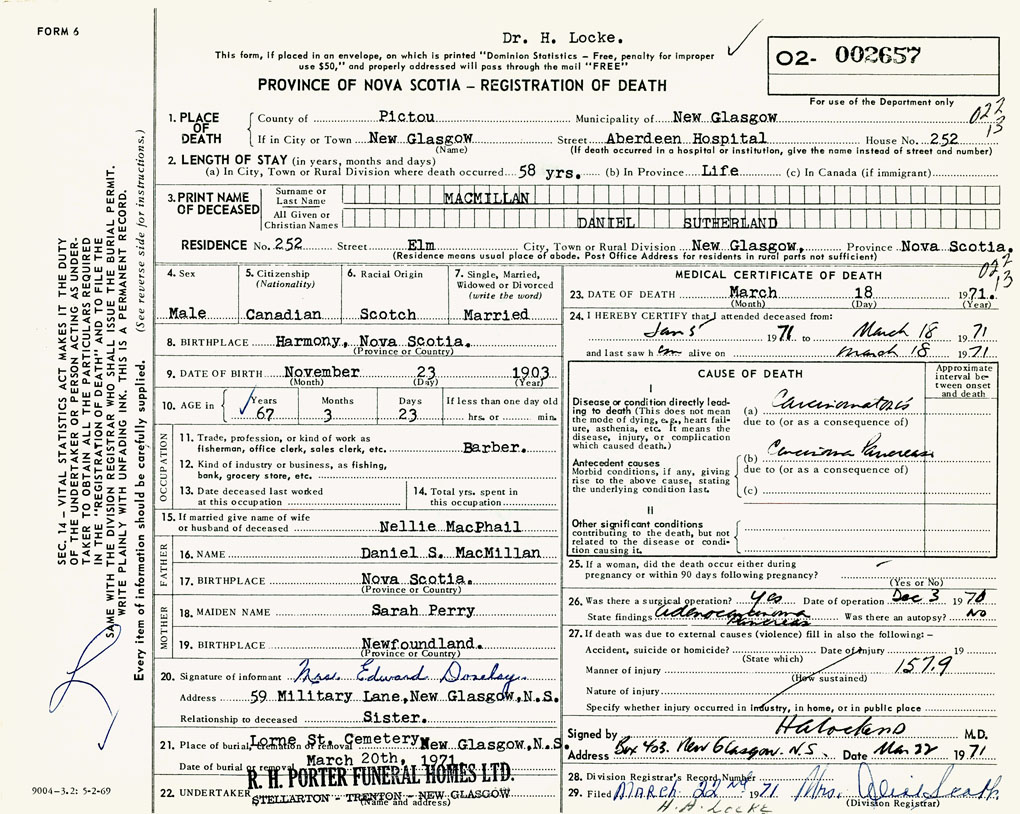 FORM 6
Dr. H. Locke.
This form, if placed in an envelope, on which is printed "Dominion Statistics - Free, penalty for improper
use $50," and properly addressed will pass through the mail "FREE"
02- 002657
PROVINCE OF NOVA SCOTIA - REGISTRATION OF DEATH
For use of the Department only
022
13
1. PLACE OF DEATH County of Pictou Municipality of New Glasgow
If in City or Town New Glasgow Street Aberdeen Hospital House No. 252
(Name) (If death occurred in a hospital or institution, give the name instead of street and number)
2. LENGTH OF STAY (in years, months and days)
(a) In City, Town or Rural Division where death occurred 58 yrs. (b) In Province Life (c) In Canada (if immigrant)
3. PRINT NAME OF DECEASED Surname or Last Name MACMILLAN
All Given or Christian Names DANIEL SUTHERLAND
RESIDENCE No. 252 Street Elm City, Town or Rural Division New Glasgow, Province Nova Scotia.
(Residence means usual place of abode. Post Office Address for residents in rural parts not sufficient)
022
13
4. Sex Male
5. Citizenship (Nationality) Canadian
6. Racial Origin Scotch
7. Single, Married, Widowed or Divorced (write the word) Married
8. BIRTHPLACE Harmony, Nova Scotia.
(Province or Country)
9. DATE OF BIRTH November 23 1903
(Month) (Day) (Year)
10. AGE in Years 67 Months 3 Days 23 If less than one day old hrs. or min.
OCCUPATION
11. Trade, profession, or kind of work as fisherman, office clerk, sales clerk, etc. Barber.
12. Kind of industry or business, as fishing, bank, grocery store, etc.
13. Date deceased last worked at this occupation
14. Total yrs. spent in this occupation
15. If married give name of wife or husband of deceased Nellie MacPhail
FATHER
16. NAME Daniel S. MacMillan
17. BIRTHPLACE Nova Scotia.
(Province or Country)
MOTHER
18. MAIDEN NAME Sarah Perry
19. BIRTHPLACE Newfoundland.
(Province or Country)
20. Signature of informant Mrs. Edward
Address 59 Military Lane, New Glasgow, N.S.
Relationship to deceased Sister.
21. Place of burial, cremation or removal Lorne St. Cemetery New Glasgow, N.S.
Date of burial or removal March 20th, 1971
22. UNDERTAKER R. H. PORTER FUNERAL HOMES LTD.
STELLARTON - TRENTON - NEW GLASGOW
(Name and address)
MEDICAL CERTIFICATE OF DEATH
23. DATE OF DEATH March 18 1971.
(Month) (Day) (Year)
24. I HEREBY CERTIFY that I attended deceased from:
Jan 5 1971 to March 18 1971
and last saw him alive on March 18 1971
CAUSE OF DEATH
Approximate interval between onset and death
I
Disease or condition directly leading to death (This does not mean the mode of dying, e.g., heart failure, asthenia, etc. It means the disease, injury, or complication which caused death.)
(a) Carcinomatosis
due to (or as a consequence of)
Antecedent causes
Morbid conditions, if any, giving rise to the above cause, stating the underlying condition last.
(b) Carcinoma Pancreas
due to (or as a consequence of)
(c)
II
Other significant conditions contributing to the death, but not related to the disease or condition causing it.
25. If a woman, did the death occur either during pregnancy or within 90 days following pregnancy? -
(Yes or No)
26. Was there a surgical operation? Yes Date of operation Dec 3 1970
State findings Adenocarcinoma Pancreas Was there an autopsy? No
27. If death was due to external causes (violence) fill in also the following: -
Accident, suicide or homicide? Date of injury 19
(State which)
Manner of injury 157.9
(How sustained)
Nature of injury
Specify whether injury occurred in industry, in home, or in public place
Signed by M.D.
Address Box 403. New Glasgow. N.S. Date Mar 22 1971
28. Division Registrar's Record Number
29. Filed March 22nd 1971 Mrs.
(Division Registrar)
H. A. LOCKE
SEC. 14 - VITAL STATISTICS ACT MAKES IT THE DUTY
OF THE UNDERTAKER OR PERSON ACTING AS UNDER-
TAKER TO OBTAIN ALL THE PARTICULARS REQUIRED
IN THE "REGISTRATION OF DEATH" AND TO FILE THE
SAME WITH THE DIVISION REGISTRAR WHO SHALL ISSUE THE BURIAL PERMIT.
WRITE PLAINLY WITH UNFADING INK. THIS IS A PERMANENT RECORD.
Every item of information should be carefully supplied. (See reverse side for instructions.)
9004-3.2: 5-2-69